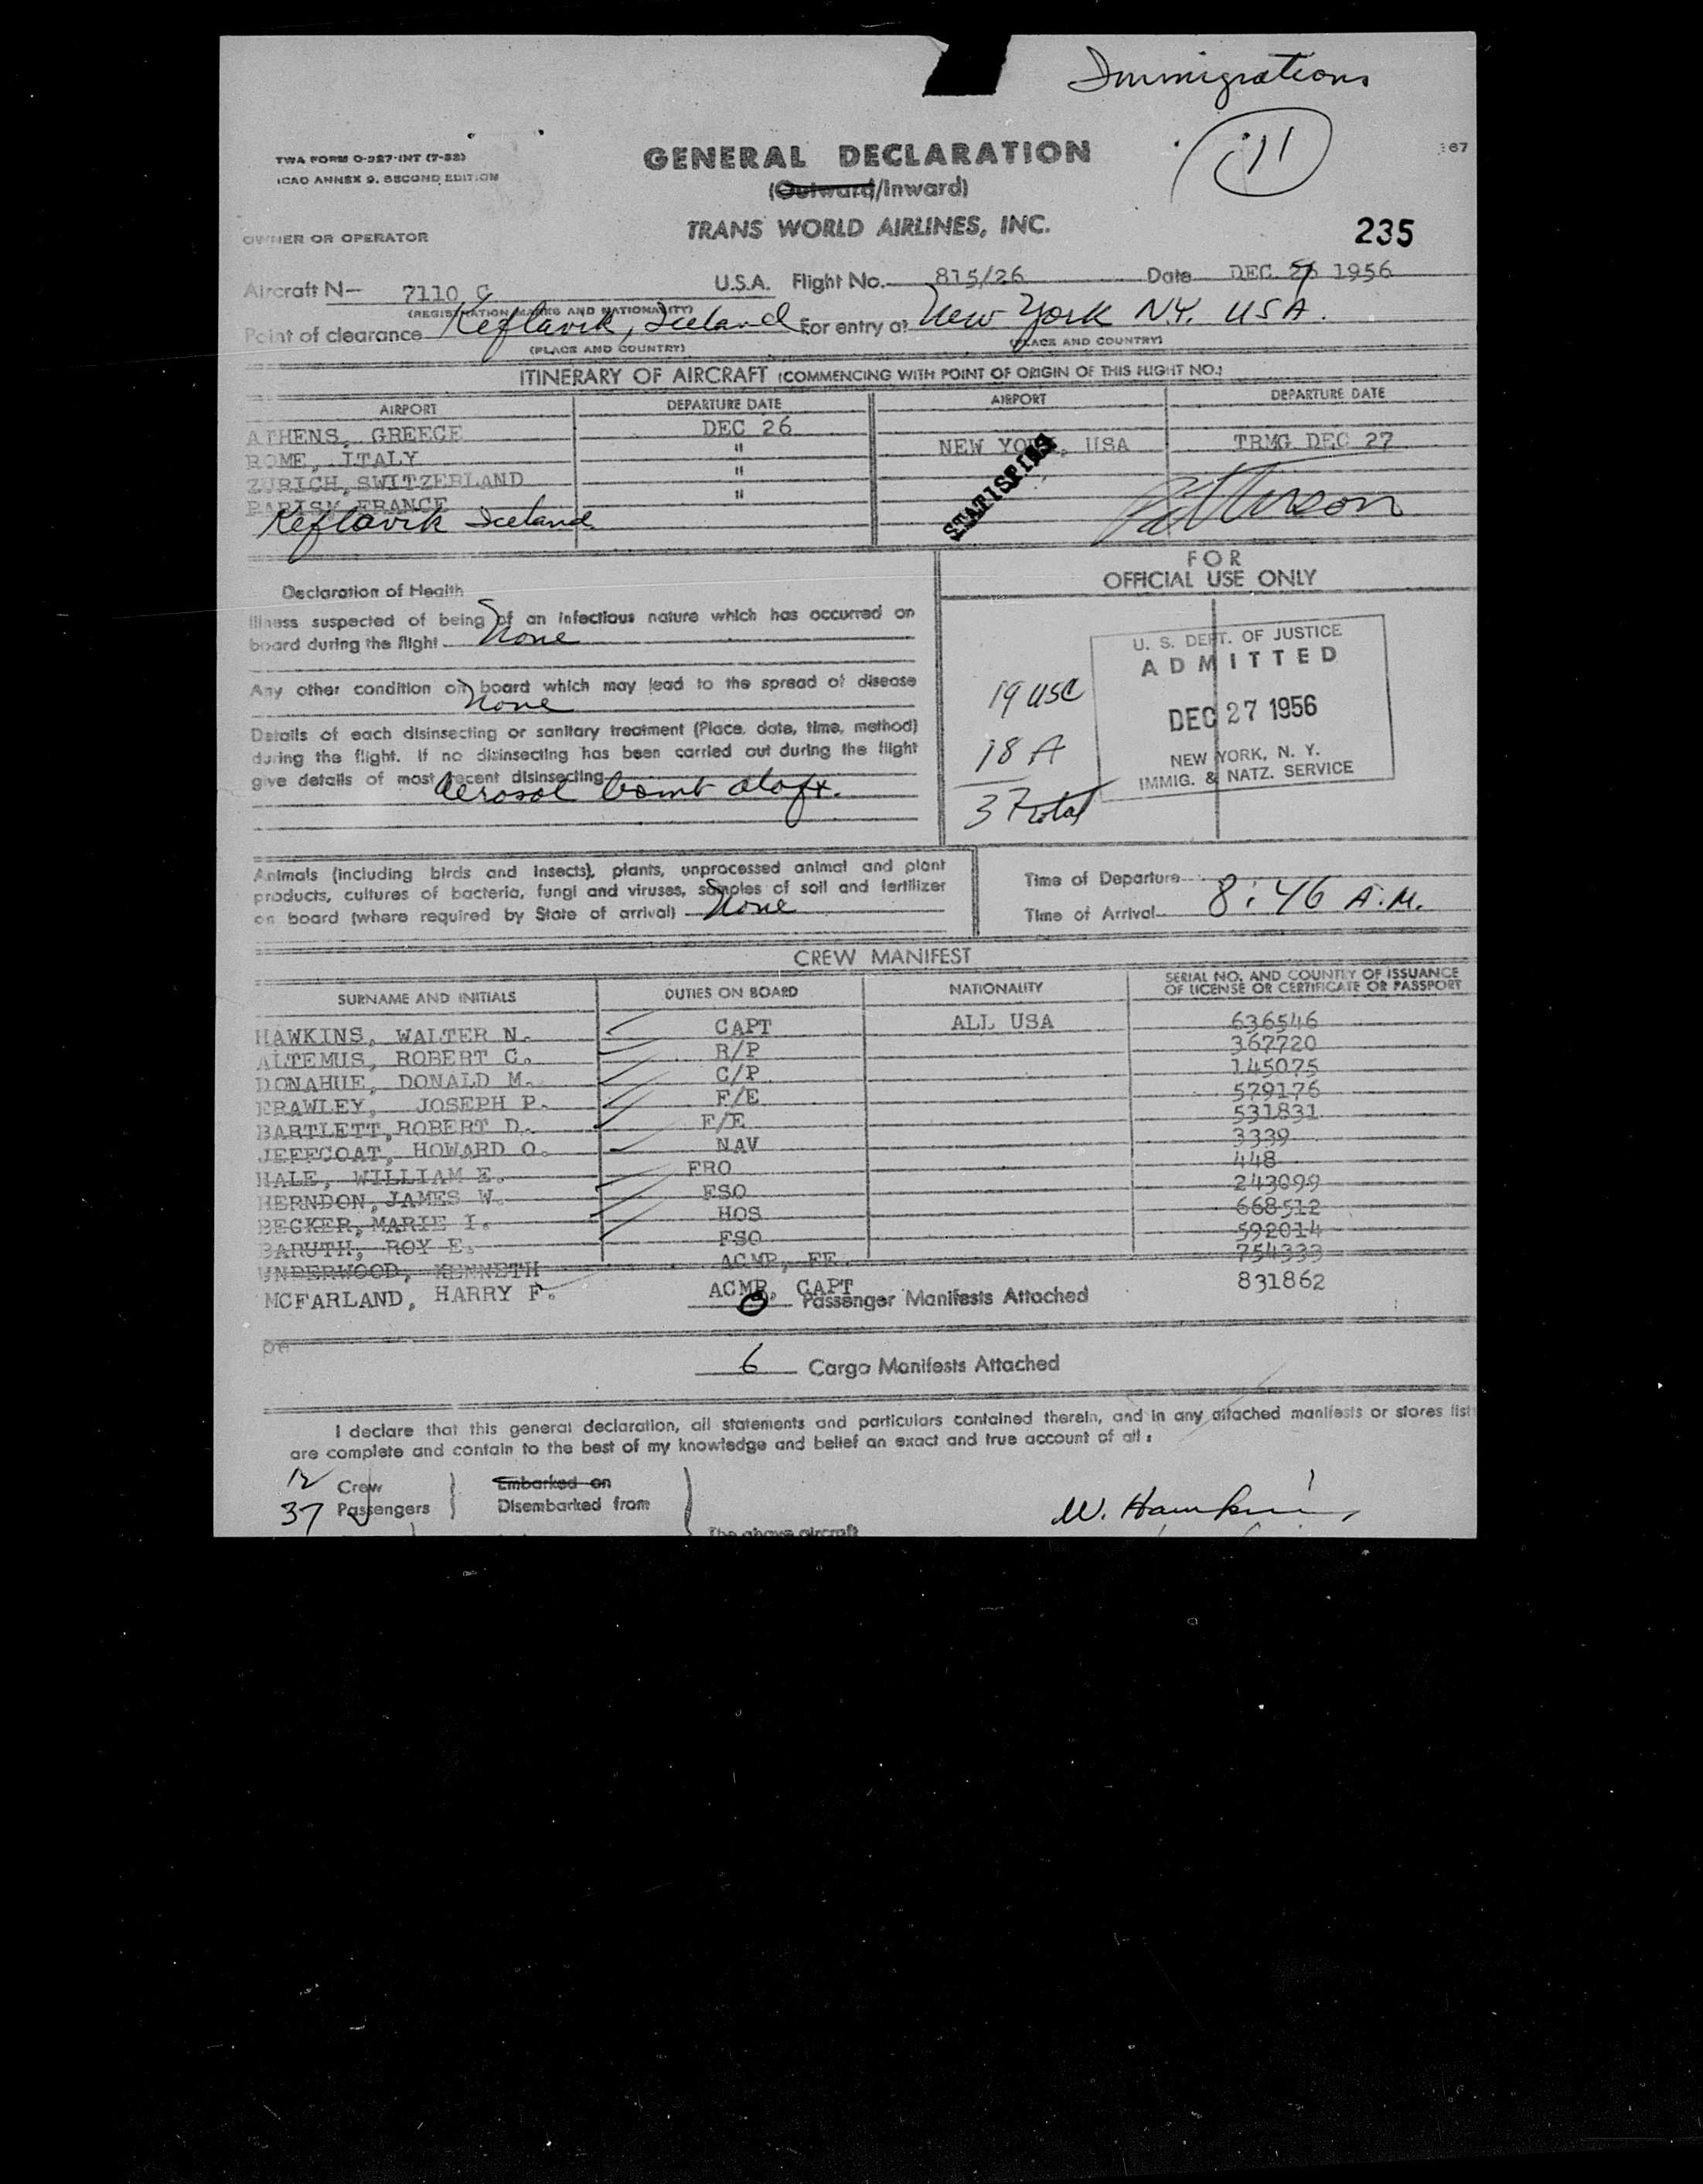 Immigrations
11
TWA FORM O-927-INT (7-52)
ICAO ANNEX 9, SECOND EDITION
GENERAL DECLARATION
67
(Outward/Inward)
OWNER OR OPERATOR
TRANS WORLD AIRLINES, INC.
235
Aircraft N— 7110 C U.S.A. Flight No. 815/26 Date DEC 1956
(REGISTRATION MARKS AND NATIONALITY)
Point of clearance Keflavik, Iceland For entry at New York N.Y. USA.
(PLACE AND COUNTRY) (PLACE AND COUNTRY)
ITINERARY OF AIRCRAFT (COMMENCING WITH POINT OF ORIGIN OF THIS FLIGHT NO.)
AIRPORT DEPARTURE DATE AIRPORT DEPARTURE DATE
ATHENS, GREECE DEC 26
ROME, ITALY " NEW YORK, USA TRMG DEC 27
ZURICH, SWITZERLAND "
PARIS, FRANCE "
Keflavik Iceland
Patterson
FOR
OFFICIAL USE ONLY
Declaration of Health
Illness suspected of being of an infectious nature which has occurred on
board during the flight None
Any other condition on board which may lead to the spread of disease
None
Details of each disinsecting or sanitary treatment (Place, date, time, method)
during the flight. If no disinsecting has been carried out during the flight
give details of most recent disinsecting
Aerosol bomb aloft.
19 USC
18 A
37 total
U. S. DEPT. OF JUSTICE
ADMITTED
DEC 27 1956
NEW YORK, N. Y.
IMMIG. & NATZ. SERVICE
Animals (including birds and insects), plants, unprocessed animal and plant
products, cultures of bacteria, fungi and viruses, samples of soil and fertilizer
on board (where required by State of arrival) None
Time of Departure
Time of Arrival 8:46 A.M.
CREW MANIFEST
SURNAME AND INITIALS DUTIES ON BOARD NATIONALITY SERIAL NO. AND COUNTRY OF ISSUANCE
OF LICENSE OR CERTIFICATE OR PASSPORT
HAWKINS, WALTER N. CAPT ALL USA 636546
ALTEMUS, ROBERT C. R/P 367720
DONAHUE, DONALD M. C/P 145075
FRAWLEY, JOSEPH P. F/E 579176
BARTLETT, ROBERT D. F/E 531831
JEFFCOAT, HOWARD O. NAV 3339
HALE, WILLIAM E. FRO 448
HERNDON, JAMES W. FSO 243099
BECKER, MARIE I. HOS 668512
BARUTH, ROY E. FSO 592014
UNDERWOOD, KENNETH ACMR, FE 754333
MCFARLAND, HARRY F. ACMR, CAPT 831862
0 Passenger Manifests Attached
6 Cargo Manifests Attached
I declare that this general declaration, all statements and particulars contained therein, and in any attached manifests or stores list
are complete and contain to the best of my knowledge and belief an exact and true account of all :
12 Crew Embarked on
37 Passengers Disembarked from
W. Hawkins
The above aircraft